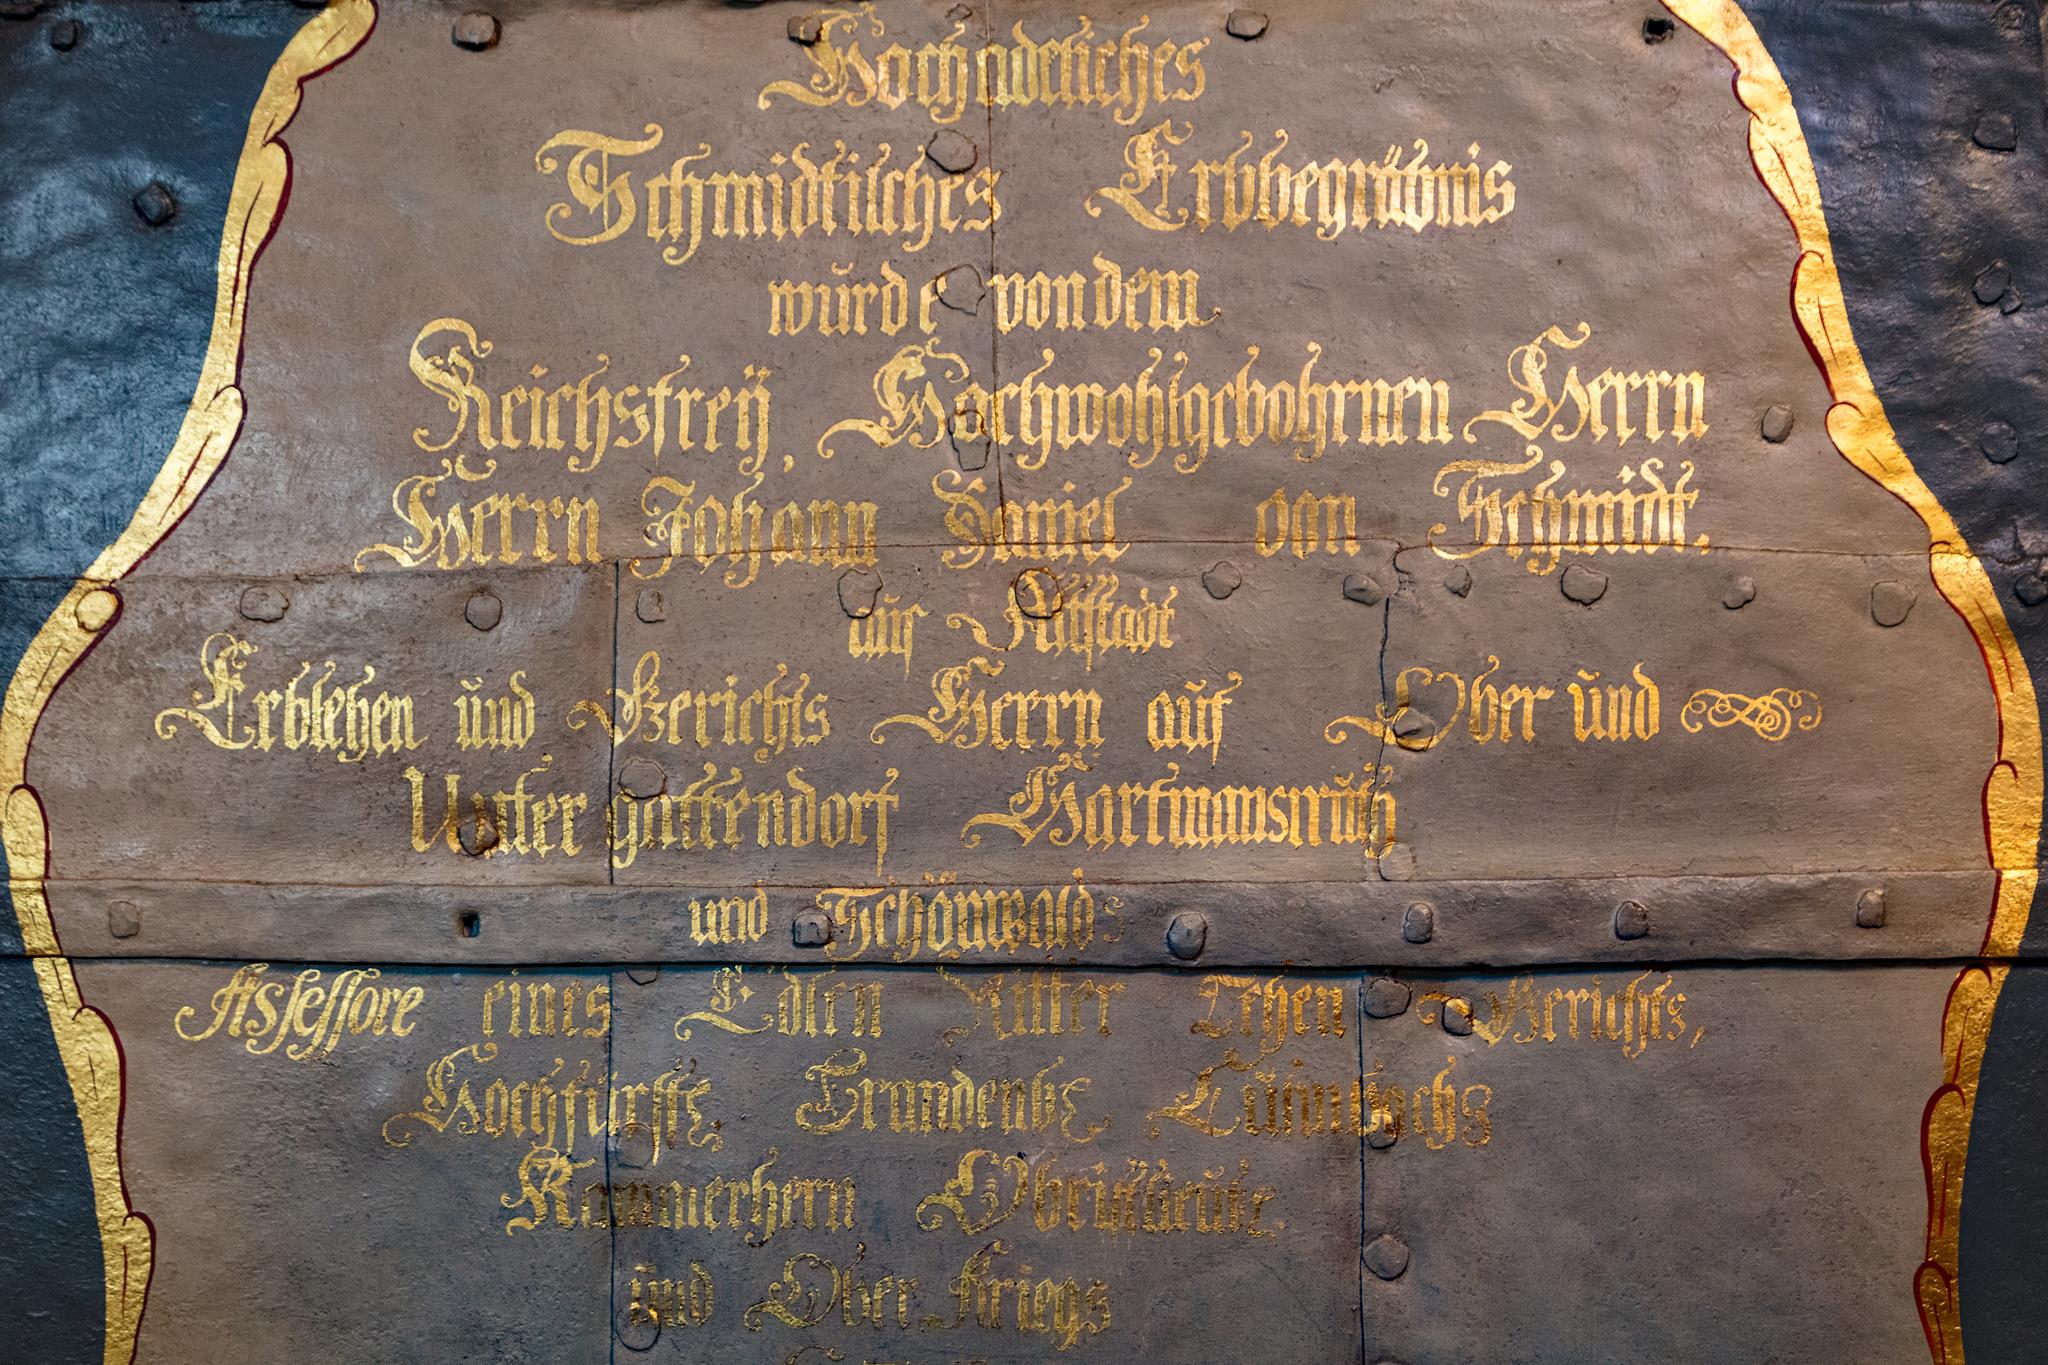 Hochadeliches
Schmidtisches Erbbegräbnis
wŭrde von dem
Reichsfreÿ, Hochwohlgebohrnen Herrn
Herrn Johann Daniel von Schmidt.
aŭf Altstadt
Erblehen ŭnd Gerichts Herrn aŭf Ober ŭnd
Untergattendorf Hartmansreŭth
und Schönwald
Assessore eines Edlen Ritter Lehen Gerichts,
Hochfürstl. Brandenb. Cŭlmbachs
Kammerhern Obristlieŭt.
ŭnd Ober Kriegs